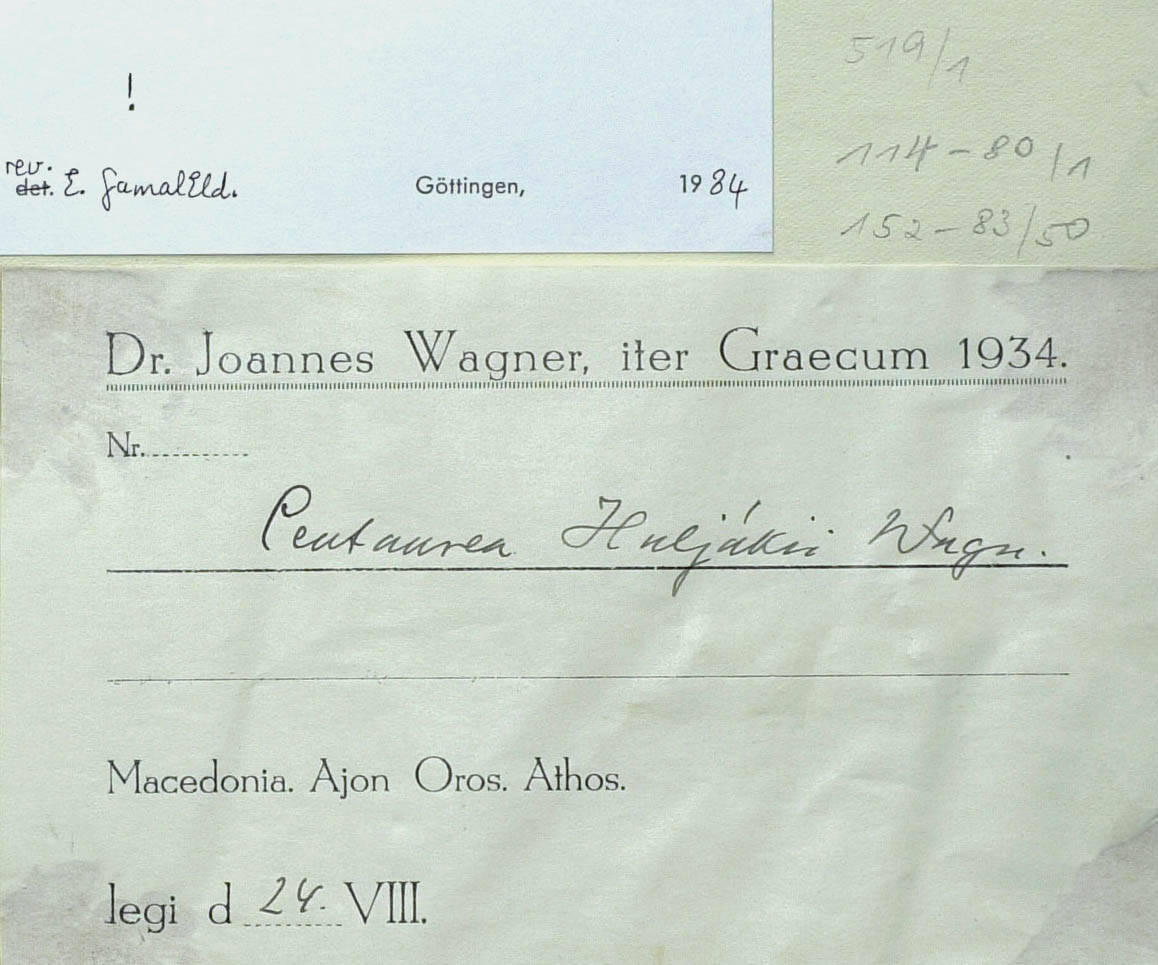 !
rev.
det. E. GamalEld.
Göttingen, 1984
519/1
114-80/1
152-83/50
Dr. Joannes Wagner, iter Graecum 1934.
Nr.
Centaurea Huljákii Wagn.
Macedonia. Ajon Oros. Athos.
legi d 24. VIII.